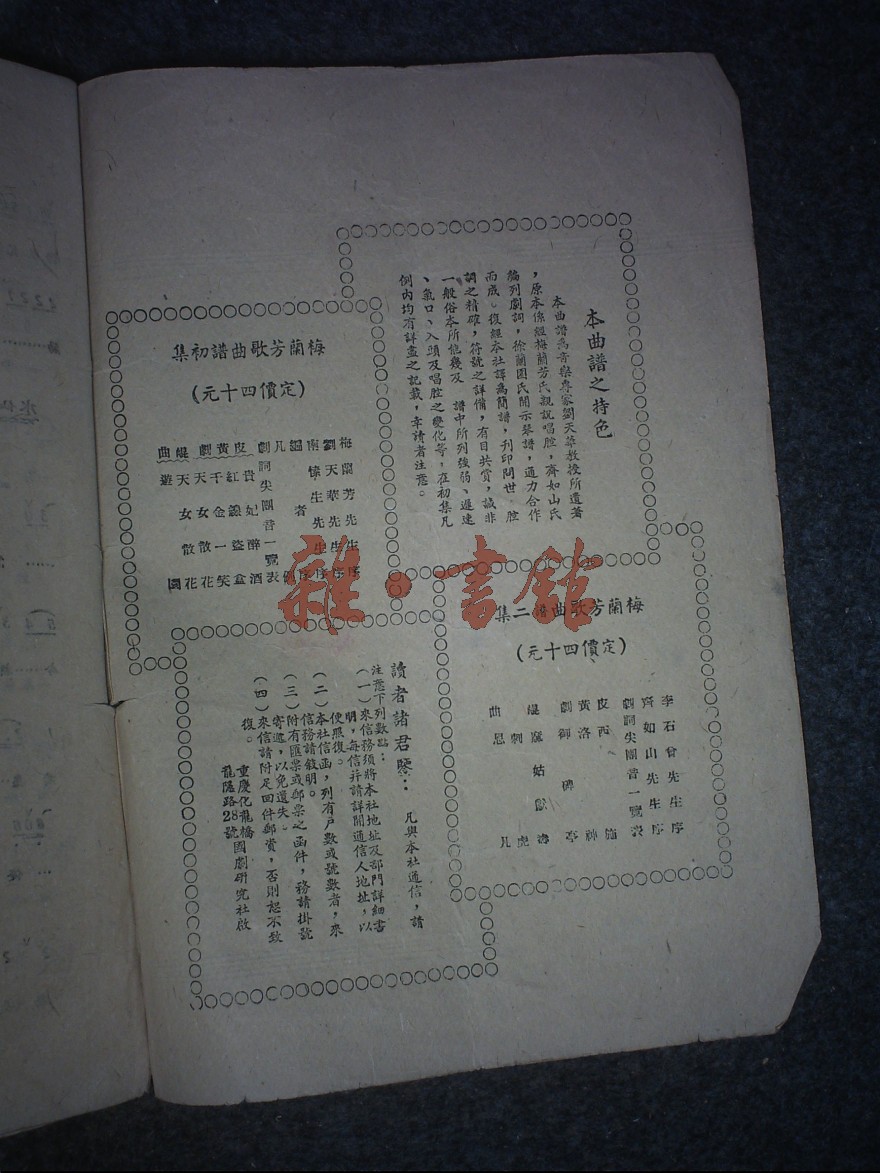 本曲譜之特色
本曲譜爲音樂專家劉天華教授所遺著
,原本係經梅蘭芳氏親說唱腔,齊如山氏
編列劇詞,徐蘭園氏開示琴譜,通力合作
而成。復經本社譯爲簡譜,刊印問世。腔
調之精確,符號之詳備,有目共賞,誠非
一般俗本所他幾及 譜中所列強弱、遲速
、氣口、入頭及唱腔之變化等,在初集凡
例內均有詳盡之記載,幸請者注意。
梅蘭芳歌曲譜初集
(定價四十元)
梅蘭芳先生序
劉天華先生序
悚生先生序
謳者序
凡例
劇詞尖團音一覽表
皮黃劇
貴妃醉酒
紅綫盜盒
千金一笑
天女散花
緄曲
天女散花
遊園
梅蘭芳歌曲譜二集
(定價四十元)
李石曾先生序
齊如山先生序
劇詞尖團音一覽表
皮黃劇
西施
洛神
御碑亭
麻姑獻壽
緄曲
刺虎
思凡
讀者諸君鑒: 凡與本社通信,請
注意下列數點:
(一)來信務須將本社地址及部門詳細書
明,每信幷請詳開通信人地址,以
便照復。
(二)本社信函,列有戶數或號數者,來
信務請敘明。
(三)附有匯票或郵票之函件,務請掛號
寄遞,以免遺失。
(四)來信請附足回件郵資,否則恕不致
復。
重慶化龍橋國劇研究社啟
龍隱路28號
雜·書館